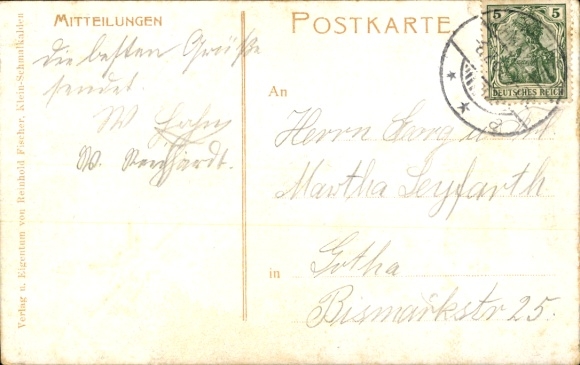 MITTEILUNGEN
Die besten Grüße
sendet
W
W. Reinhardt.
POSTKARTE
5 5
DEUTSCHES REICH
An
Herrn Georg
Martha Leyfarth
in Gotha
Bismarkstr 25.
Verlag u. Eigentum von Reinhold Fischer, Klein-Schmalkalden